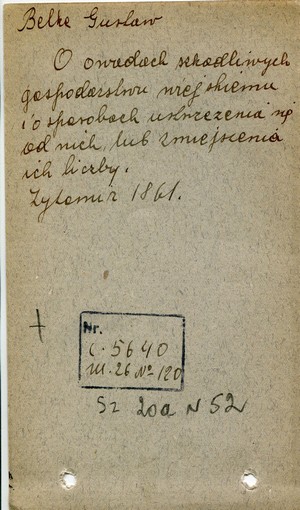 Belke Gustaw
O owadach szkodliwych
gospodarstwu wiejskiemu
i o sposobach ustrzeżenia się
od nich, lub zmiejszenia
ich liczby.
Żytomir 1861.
Nr.
C. 5640
III. 26 No 120
Sz 20a N 52